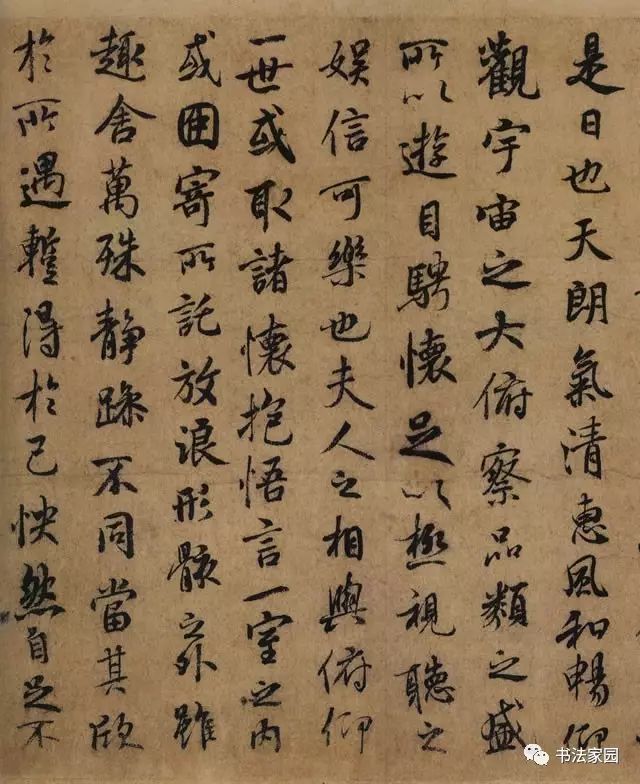 是日也天朗氣清惠風和暢仰
觀宇宙之大俯察品類之盛
所以遊目騁懷足以極視聽之
娛信可樂也夫人之相與俯仰
一世或取諸懷抱悟言一室之內
或因寄所託放浪形骸之外雖
趣舍萬殊靜躁不同當其欣
於所遇蹔得於己怏然自足不
书法家园